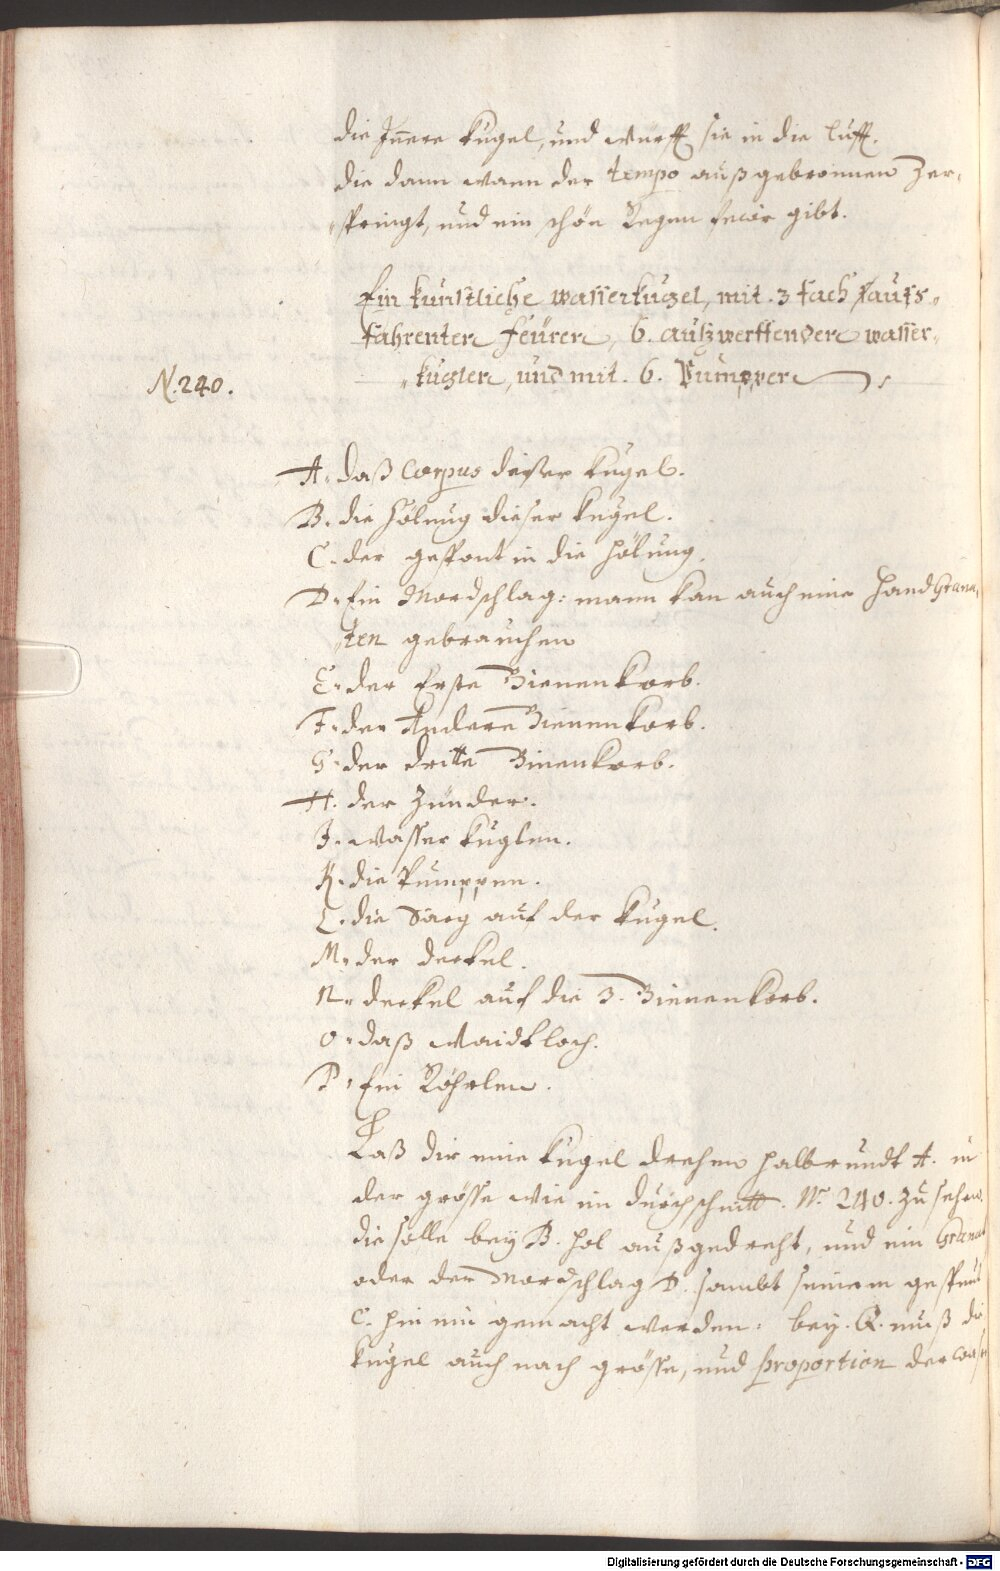 die Jn̄ere Kugel, und würfft sie in die lufft.
die dann wann der tempo außgebronnen Zer„
„springt, und ein schön Regen feür gibt.
Ein kunstliche wasserkugel, mit. 3 fach auß„
fahrenten feüren, 6. außwerffenden wasser„
„kuglen, und mit. 6. Pumppen
N. 240.
A. daß Corpus dießer Kugel.
B. die Hölung dieser Kugel.
C. der gespont in die Hölung.
D. Ein Mordschlag: mann kan auch eine Hand Grana„
„ten gebrauchen
E. der Erste Bienenkorb.
F. der Andere Bienenkorb.
G. der dritte Binenkorb.
H. der Zünder.
J. wasser Kuglen.
K. die Pumppen.
L. die Sarg auf der Kugel.
M. der deckel.
N. deckel auf die 3. Bienenkorb.
O. daß Waidtloch.
P. Ein Röhrlen.
Laß dir eine Kugel drehen halbrundt A. in
der grösse wie im durchschnitt. N.º 240. zu sehen.
die solle bey B. hol außgedreht, und ein Granat
oder der Mordschlag D. sambt seinem gespunt
C. hin ein gemacht werden: bey. Q. muß die
Kugel auch nach grösse, und proportion der
Digitalisierung gefördert durch die Deutsche Forschungsgemeinschaft - DFG